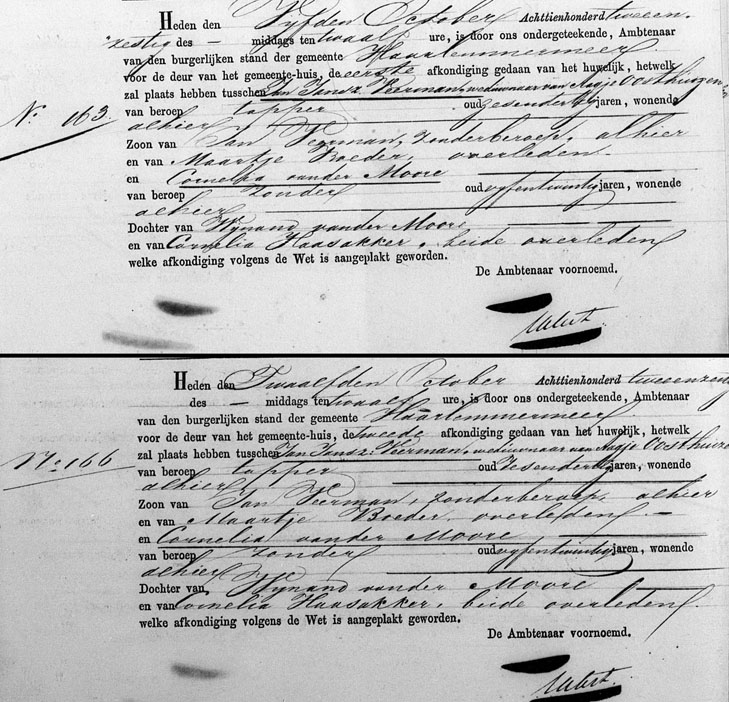 Heden den Vyfden October Achttienhonderd tweeen-
zestig des — middags ten twaalf ure, is door ons ondergeteekende, Ambtenaar
van den burgerlijken stand der gemeente Haarlemmermeer
voor de deur van het gemeente-huis, de eerste afkondiging gedaan van het huwelijk, hetwelk
zal plaats hebben tusschen Jan Jansz. Veerman, weduwnaar van Aagje Oosthuizen
No. 163.
van beroep tapper oud zesendertig jaren, wonende
alhier
Zoon van Jan Veerman, zonder beroep, alhier
en van Maartje Boeder, overleden -
en Cornelia van der Moore
van beroep zonder oud vyfentwintig jaren, wonende
alhier
Dochter van Wynand van der Moore
en van Cornelia Haasakker, beide overleden
welke afkondiging volgens de Wet is aangeplakt geworden.
De Ambtenaar voornoemd.
Heden den Twaalfden October Achttienhonderd tweeenzestig
des — middags ten twaalf ure, is door ons ondergeteekende, Ambtenaar
van den burgerlijken stand der gemeente Haarlemmermeer
voor de deur van het gemeente-huis, de tweede afkondiging gedaan van het huwelijk, hetwelk
zal plaats hebben tusschen Jan Jansz: Veerman, weduwnaar van Aagje Oosthuizen
No. 166
van beroep tapper oud zesendertig jaren, wonende
alhier
Zoon van Jan Veerman, zonder beroep, alhier
en van Maartje Boeder, overleden. —
en Cornelia van der Moore
van beroep zonder oud vyfentwintig jaren, wonende
alhier
Dochter van Wynand van der Moore
en van Cornelia Haasakker, beide overleden.
welke afkondiging volgens de Wet is aangeplakt geworden.
De Ambtenaar voornoemd.